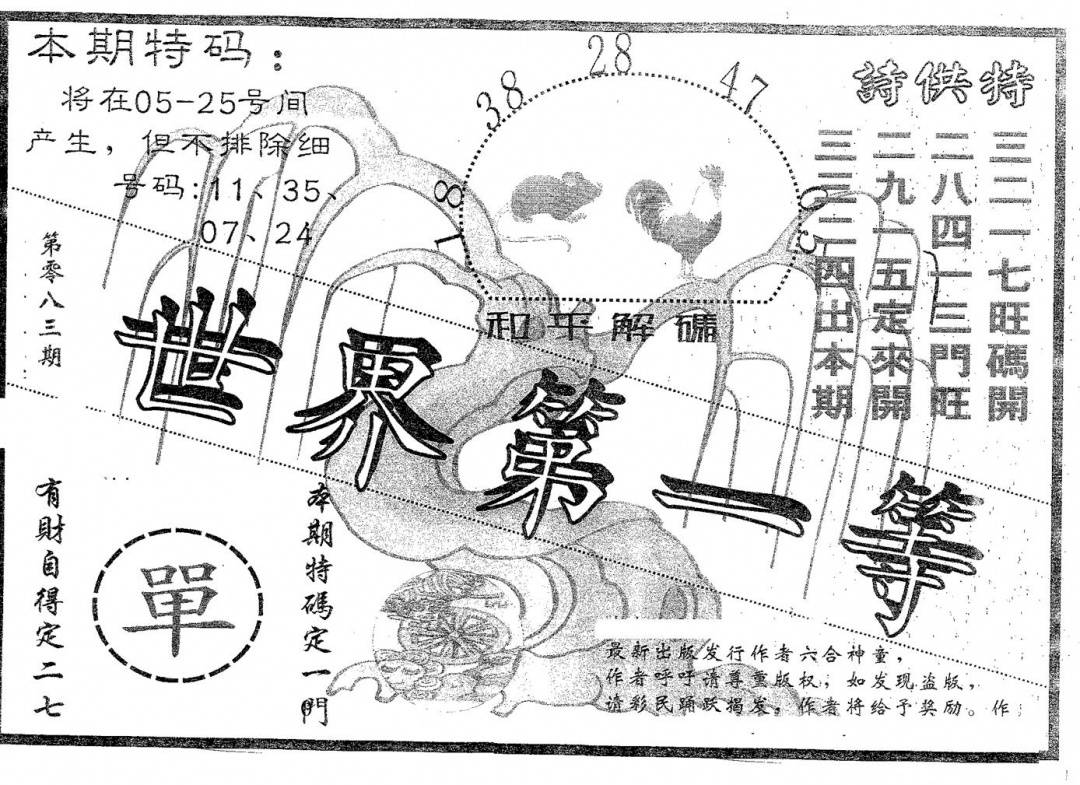 本期特码：
将在05-25号间
产生，但不排除细
号码:11、35、
07、24
第零八三期
18
38
28
47
05
和平解碼
特供詩
三二一七旺碼開
二八四一三門旺
二九一五定來開
三三二四出本期
世界第一等
有財自得定二七
單
本期特碼定一門
最新出版发行作者六合神童，
作者呼吁请尊重版权，如发现盗版，
请彩民踊跃揭发，作者将给予奖励。作